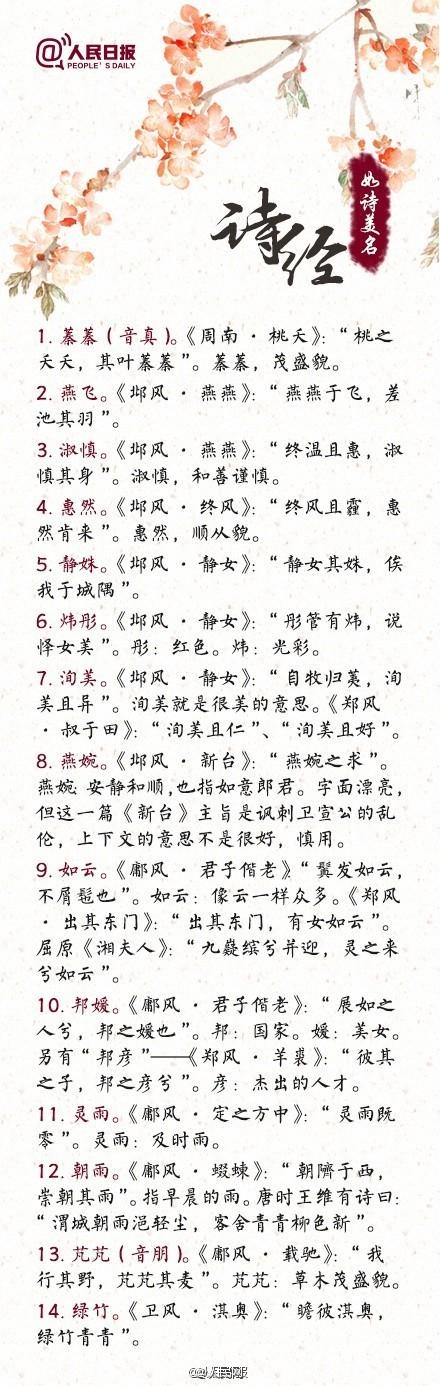 @人民日报
PEOPLE'S DAILY
如诗美名
诗经
1. 蓁蓁（音真）。《周南·桃夭》：“桃之
夭夭，其叶蓁蓁”。蓁蓁，茂盛貌。
2. 燕飞。《邶风·燕燕》：“燕燕于飞，差
池其羽”。
3. 淑慎。《邶风·燕燕》：“终温且惠，淑
慎其身”。淑慎，和善谨慎。
4. 惠然。《邶风·终风》：“终风且霾，惠
然肯来”。惠然，顺从貌。
5. 静姝。《邶风·静女》：“静女其姝，俟
我于城隅”。
6. 炜彤。《邶风·静女》：“彤管有炜，说
怿女美”。彤：红色。炜：光彩。
7. 洵美。《邶风·静女》：“自牧归荑，洵
美且异”。洵美就是很美的意思。《郑风
·叔于田》：“洵美且仁”、“洵美且好”。
8. 燕婉。《邶风·新台》：“燕婉之求”。
燕婉 安静和顺，也指如意郎君。字面漂亮，
但这一篇《新台》主旨是讽刺卫宣公的乱
伦，上下文的意思不是很好，慎用。
9. 如云。《鄘风·君子偕老》“鬒发如云，
不屑髢也”。如云：像云一样众多。《郑风
·出其东门》：“出其东门，有女如云”。
屈原《湘夫人》：“九嶷缤兮并迎，灵之来
兮如云”。
10. 邦媛。《鄘风·君子偕老》：“展如之
人兮，邦之媛也”。邦：国家。媛：美女。
另有“邦彦”——《郑风·羊裘》：“彼其
之子，邦之彦兮”。彦：杰出的人才。
11. 灵雨。《鄘风·定之方中》：“灵雨既
零”。灵雨：及时雨。
12. 朝雨。《鄘风·蝃蝀》：“朝隮于西，
崇朝其雨”。指早晨的雨。唐时王维有诗曰：
“渭城朝雨浥轻尘，客舍青青柳色新”。
13. 芃芃（音朋）。《鄘风·载驰》：“我
行其野，芃芃其麦”。芃芃：草木茂盛貌。
14. 绿竹。《卫风·淇奥》：“瞻彼淇奥，
绿竹青青”。
@人民日报